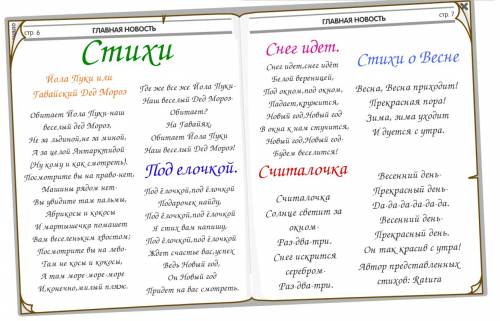 стр. 6
ГЛАВНАЯ НОВОСТЬ
Стихи
Йола Пуки или
Гавайский Дед Мороз
Обитает Йола Пуки-наш
веселый дед Мороз,
Не за льдиной,не за миной,
А за целой Антарктидой
(Ну кому и как смотреть).
Посмотрите вы на право-нет,
Машины рядом нет-
Вы увидите там пальмы,
Абрикосы и кокосы
И мартышечка помашет
Вам веселеньким хвостом;
Посмотрите вы на лево-
Там не косы и кокосы,
А там море-море-море
И,конечно,милый пляж.
Где же все же Йола Пуки-
Наш веселый Дед Мороз-
Обитает?
На Гавайях,
Обитает Йола Пуки
Наш веселый Дед Мороз!
Под елочкой.
Под ёлочкой,под ёлочкой
Подарочек найду,
Под ёлочкой,под ёлочкой
Я стих вам напишу,
Под ёлочкой,под ёлочкой
Ждет счастье вас,успех
Ведь Новый год,
Он Новый год
Придет на вас смотреть.
ГЛАВНАЯ НОВОСТЬ
стр. 7
Снег идет.
Снег идет,снег идёт
Белой вереницей,
Под окном,под окном,
Падает,кружится,
Новый год,Новый год
В окна к нам стучится,
Новый год,Новый год-
Будем веселится!
Считалочка
Считалочка
Солнце светит за
окном-
Раз-два-три,
Снег искрится
серебром-
Раз-два-три.
Стихи о Весне
Весна, Весна приходит!
Прекрасная пора!
Зима, зима уходит
И дуется с утра.
Весенний день-
Прекрасный день-
Да-да-да-да-да-да,
Весенний день-
Прекрасный день,
Он так красив с утра!
Автор представленных
стихов: Ratura